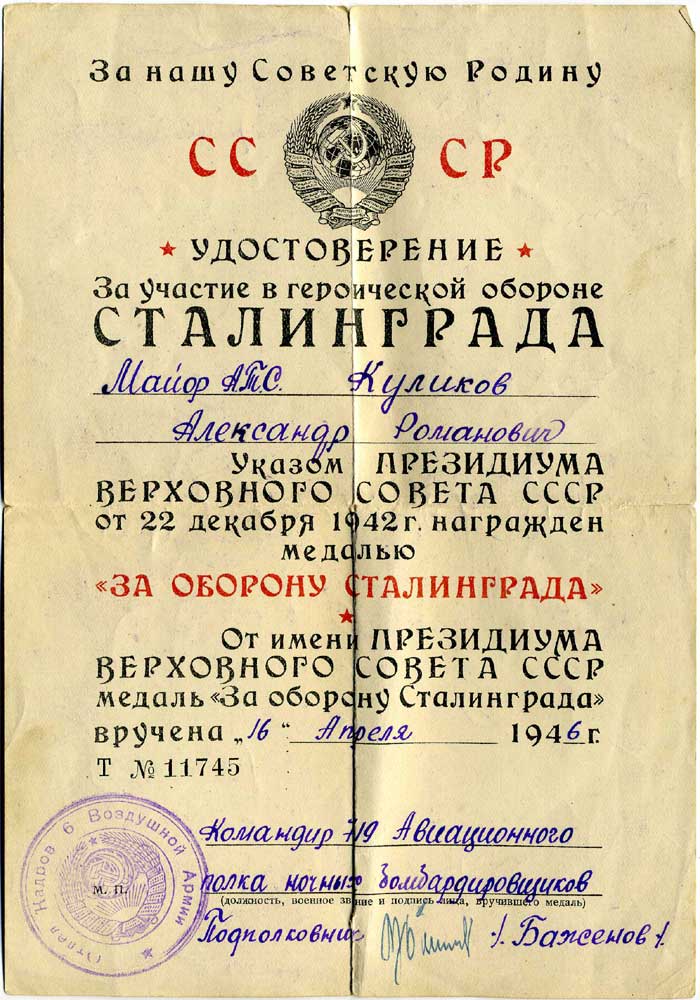 За нашу Советскую Родину
СССР
УДОСТОВЕРЕНИЕ
За участие в героической обороне
СТАЛИНГРАДА
Майор А.Т.С. Куликов
Александр Романович
Указом ПРЕЗИДИУМА
ВЕРХОВНОГО СОВЕТА СССР
от 22 декабря 1942 г. награжден
медалью
«ЗА ОБОРОНУ СТАЛИНГРАДА»
От имени ПРЕЗИДИУМА
ВЕРХОВНОГО СОВЕТА СССР
медаль «За оборону Сталинграда»
вручена „16“ Апреля 1946 г.
Т № 11745
Командир 719 Авиационного
полка ночных бомбардировщиков
(должность, военное звание и подпись лица, вручившего медаль)
Подполковник /Баженов/.
М. П.
Отдел Кадров 6 Воздушной Армии